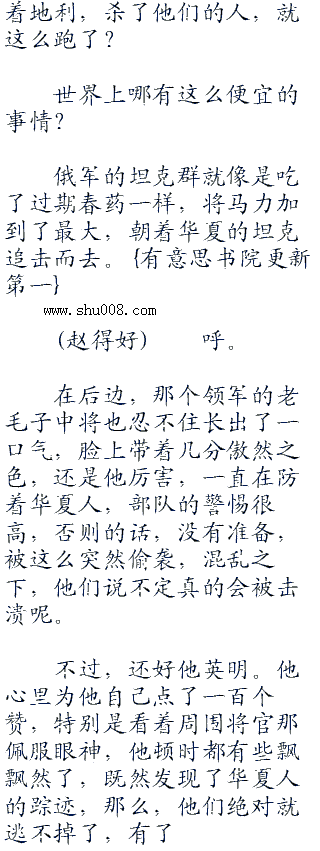 着地利，杀了他们的人，就
这么跑了？
世界上哪有这么便宜的
事情？
俄军的坦克群就像是吃
了过期春药一样，将马力加
到了最大，朝着华夏的坦克
追击而去。{有意思书院更新
第一}
www.shu008.com
(赵得好)　　呼。
在后边，那个领军的老
毛子中将也忍不住长出了一
口气，脸上带着几分傲然之
色，还是他厉害，一直在防
着华夏人，部队的警惕很
高，否则的话，没有准备，
被这么突然偷袭，混乱之
下，他们说不定真的会被击
溃呢。
不过，还好他英明。他
心里为他自己点了一百个
赞，特别是看着周围将官那
佩服眼神，他顿时都有些飘
飘然了，既然发现了华夏人
的踪迹，那么，他们绝对就
逃不掉了，有了